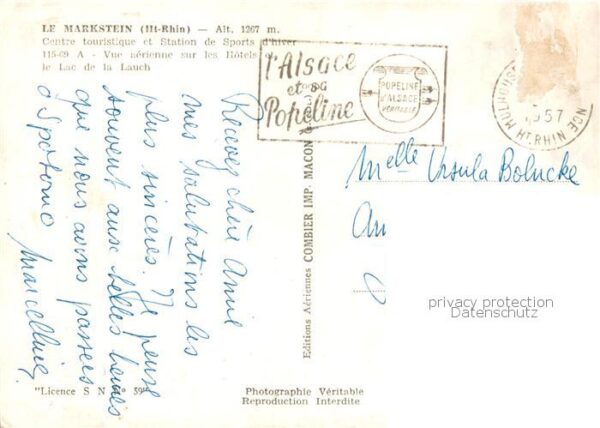 LE MARKSTEIN (Ht-Rhin) — Alt. 1267 m.
Centre touristique et Station de Sports d'hiver
115-69 A - Vue aérienne sur les Hôtels et
le Lac de la Lauch
l'Alsace
et sa
Popeline
POPELINE
D'ALSACE
VÉRITABLE
MULHOUSE
1957
HT RHIN
Recevez chère Amie
mes salutations les
plus sincères. Je pense
souvent aux belles heures
que nous avons passées
à Spotorno
Marcelline
Editions Aériennes COMBIER IMP. MACON
Melle Ursula Bolucke
An
privacy protection
Datenschutz
"Licence S N
Photographie Véritable
Reproduction Interdite